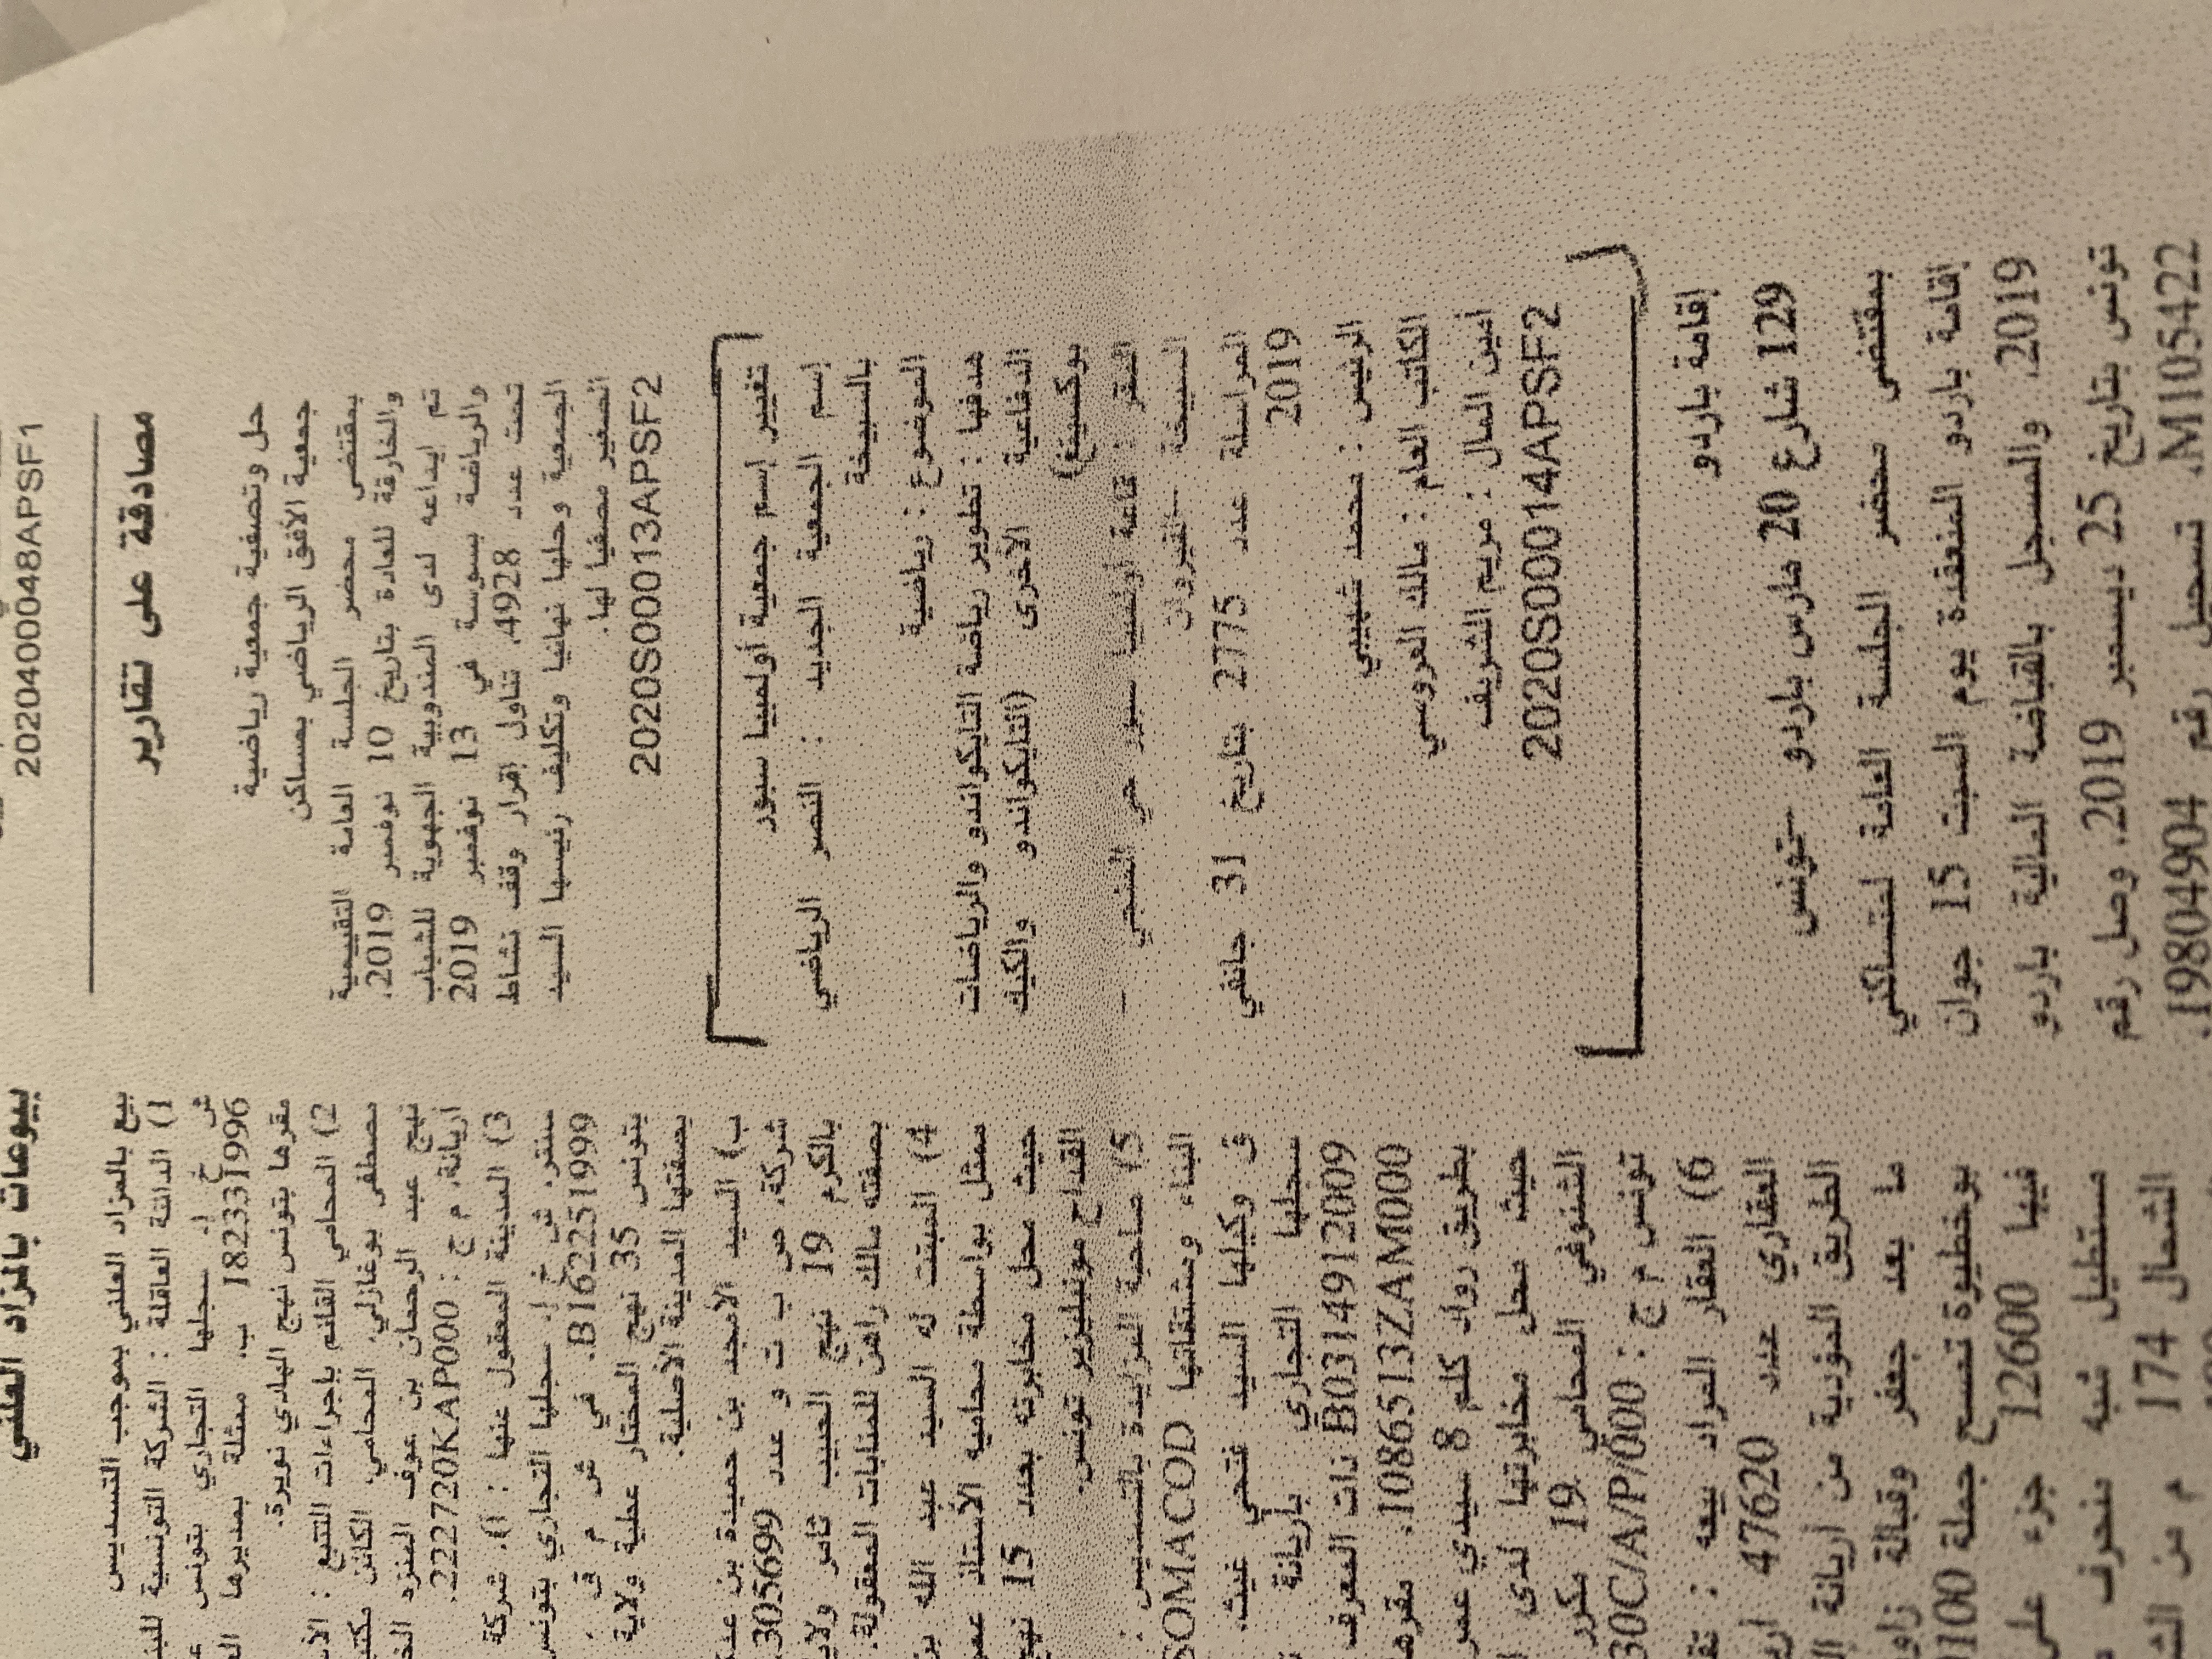 2020400048APSF1
مصادقة على تقارير
حل وتصفية جمعية رياضية
جمعية الأفق الرياضي بمساكن
بمقتضى محضر الجلسة العامة التقييمية
والخارقة للعادة بتاريخ 10 نوفمبر 2019،
تم إيداعه لدى المندوبية الجهوية للشباب
والرياضة بسوسة في 13 نوفمبر 2019
تحت عدد 4928، تناول إقرار وقف نشاط
الجمعية وحلها نهائيا وتكليف رئيسها السيد
الصغير مصفيا لها.
2020S00013APSF2
تغيير إسم جمعية أولمبيا سبور
إسم الجمعية الجديد : النصر الرياضي
بالسبيخة
الموضوع : رياضية
هدفها : تطوير رياضة التايكواندو والرياضات
الدفاعية الأخرى (التايكواندو والكيك
بوكسينغ)
المقر : قاعة أولمبيا سبور حي الفتحي –
السبيخة –القيروان
المراسلة عدد 2775 بتاريخ 31 جانفي
2019
الرئيس : محمد شهيبي
الكاتب العام : مالك العروسي
أمين المال : مريم الشريف
2020S00014APSF2
إقامة باردو
129 شارع 20 مارس باردو –تونس
بمقتضى محضر الجلسة العامة لمتساكني
إقامة باردو المنعقدة يوم السبت 15 جوان
2019، والمسجل بالقباضة المالية باردو
تونس بتاريخ 25 ديسمبر 2019، وصل رقم
M105422، تسجيل رقم 19804904.
بيوعات بالمزاد العلني
بيع بالمزاد العلني بموجب التسديس
1) الدائنة العاقلة : الشركة التونسية للبنك
ش خ ل، سجلها التجاري بتونس
ب 182331996، ممثلة بمديرها
مقرها بتونس نهج الهادي نويرة.
2) المحامي القائم بإجراءات التتبع :
مصطفى بوغازلي، المحامي، الكائن
نهج عبد الرحمان بن عوف المنزه
أريانة، م ج : 222720KAP000.
3) المدينة المعقول عنها : أ). شركة
سنتر، ش خ ل، سجلها التجاري بتونس
B162251999. في ش م ق :
بتونس 35 نهج المختار عطية ولاية
بصفتها المدينة الأصلية.
ب) السيد الأمجد بن حميدة بن
شركة، ص ب ت و عدد 305699
بالكرم 19 نهج الحبيب ثامر
بصفته مالك راهن للمنابات المعقولة.
4) المبتت له السيد عبد الله
ممثل بواسطة محاميه الأستاذ
حيث محل مخابرته بعدد 15 نهج
القداح مونبليزير تونس.
5) صاحبة المزايدة بالتسديس :
البناء ومشتقاتها SOMACOD
في وكيلها السيد فتحي غيث،
سجلها التجاري بأريانة
B0314912009 ذات المعرف
1086513ZAM000. مقرها
بطريق رواد كلم 8 سيدي عمر
حيث محل مخابرتها لدى
الشنوفي المحامي 19 مكرر
تونس م ج : 30C/A/P/000
6) العقار المراد بيعه :
العقاري عدد 47620
الطريق المؤدية من أريانة
ما بعد جعفر وقبالة
بوخطيوة تمسح جملة 1100
فيها 12600 جزء على
مستطيل شبه منحرف
الشمال 174 م من